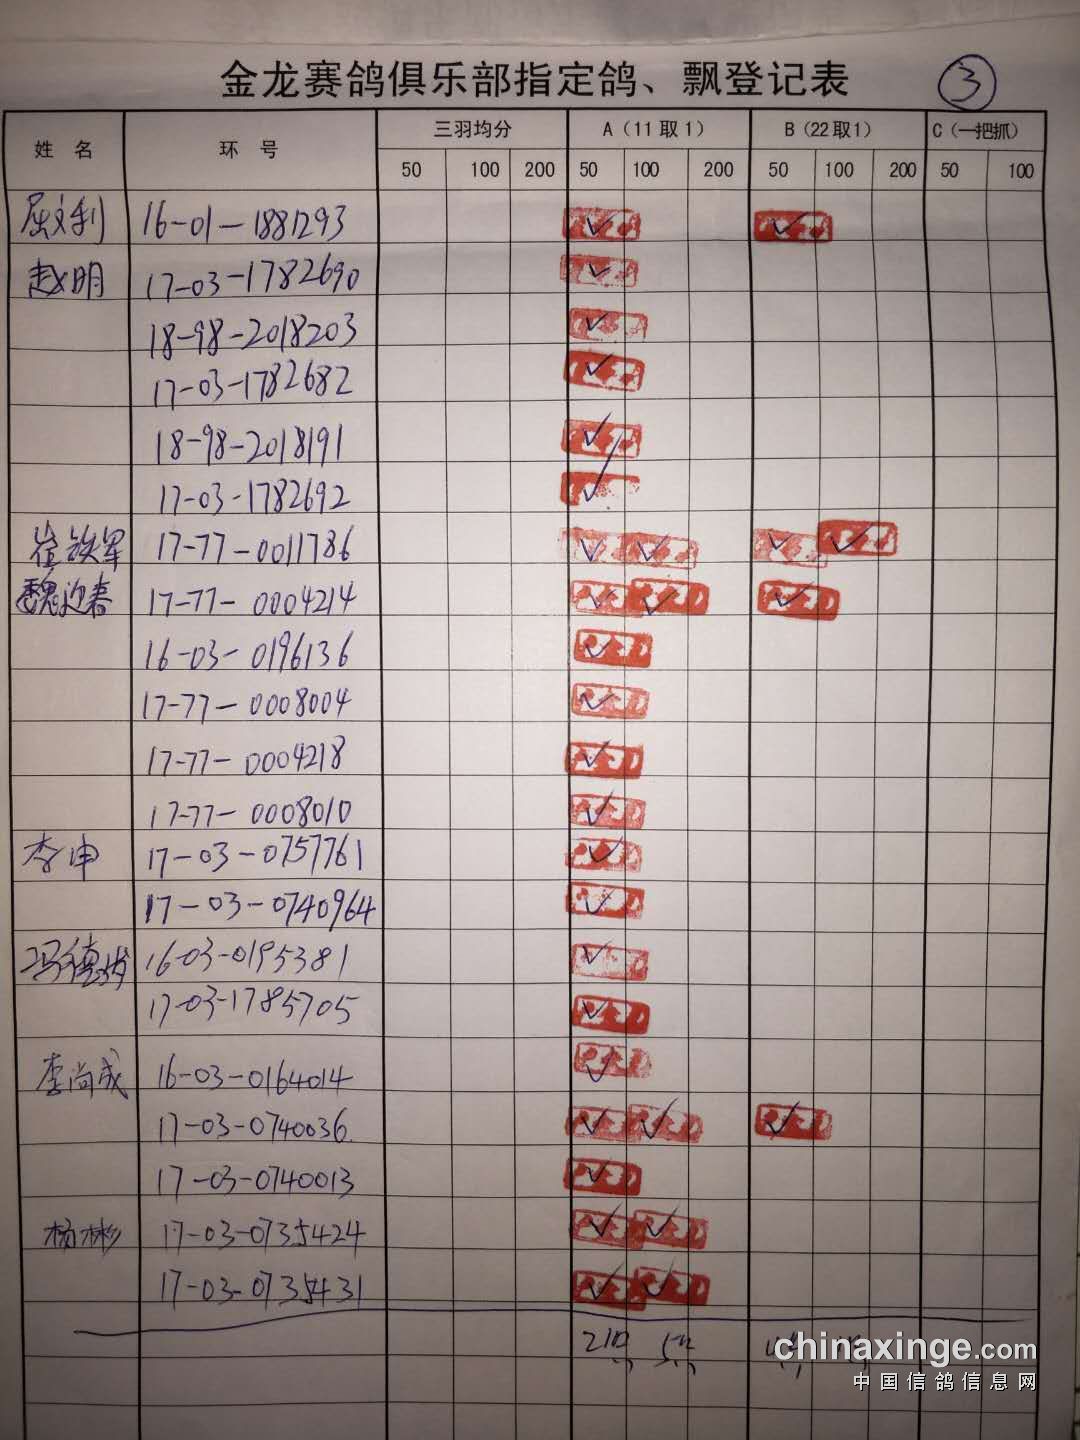 金龙赛鸽俱乐部指定鸽、飘登记表 ③
姓名 环号 三羽均分 A（11取1） B（22取1） C（一把抓）
50 100 200 50 100 200 50 100 200 50 100
屈文利 16-01-1881293 ✓ ✓
赵明 17-03-1782690 ✓
18-98-2018203 ✓
17-03-1782682 ✓
18-98-2018191 ✓
17-03-1782692 ✓
崔铁军 17-77-0011786 ✓ ✓ ✓ ✓
魏迎春 17-77-0004214 ✓ ✓ ✓
16-03-0196136 ✓
17-77-0008004 ✓
17-77-0004218 ✓
17-77-0008010 ✓
李申 17-03-0757761 ✓
17-03-0740964 ✓
冯德 16-03-0195381 ✓
17-03-1785705 ✓
李尚成 16-03-0164014 ✓
17-03-0740036 ✓ ✓ ✓
17-03-0740013 ✓
杨彬 17-03-0735424 ✓ ✓
17-03-0735431 ✓ ✓
chinaxinge.com
中国信鸽信息网